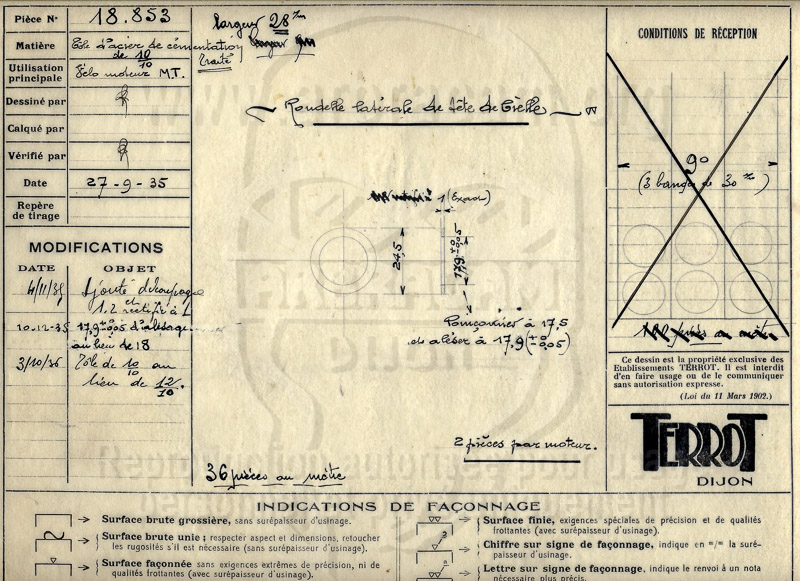 Pièce N° 18.853
Matière Tôle d'acier de cémentation
de 10/10 traité
Utilisation
principale Vélo moteur M.T.
Dessiné par
Calqué par
Vérifié par
Date 27-9-35
Repère
de tirage
MODIFICATIONS
DATE OBJET
4/11/35 Ajouté découpage
1.2 et rectifié à 1
10-12-35 17,9 +0 -0,05 d'alésage
au lieu de 18
3/10/36 Tôle de 10/10 au
lieu de 12/10.
largeur 28 m/m
Rondelle latérale de tête de bielle
1 (Exact)
24,5
17,9 +0 -0,05
Poinçonner à 17,5
et aléser à 17,9 (+0 -0,05)
2 pièces par moteur.
36 pièces au mètre
CONDITIONS DE RÉCEPTION
90
(3 bandes de 30 m/m)
au mètre
Ce dessin est la propriété exclusive des
Etablissements TERROT. Il est interdit
d'en faire usage ou de le communiquer
sans autorisation expresse.
(Loi du 11 Mars 1902.)
TERROT
DIJON
INDICATIONS DE FAÇONNAGE
Surface brute grossière, sans surépaisseur d'usinage.
Surface brute unie ; respecter aspect et dimensions, retoucher
les rugosités s'il est nécessaire (sans surépaisseur d'usinage).
Surface façonnée sans exigences extrêmes de précision, ni de
qualités frottantes (avec surépaisseur d'usinage).
Surface finie, exigences spéciales de précision et de qualités
frottantes (avec surépaisseur d'usinage).
3
Chiffre sur signe de façonnage, indique en m/m la suré-
paisseur d'usinage.
a
Lettre sur signe de façonnage, indique le renvoi à un nota
nécessaire plus précis.